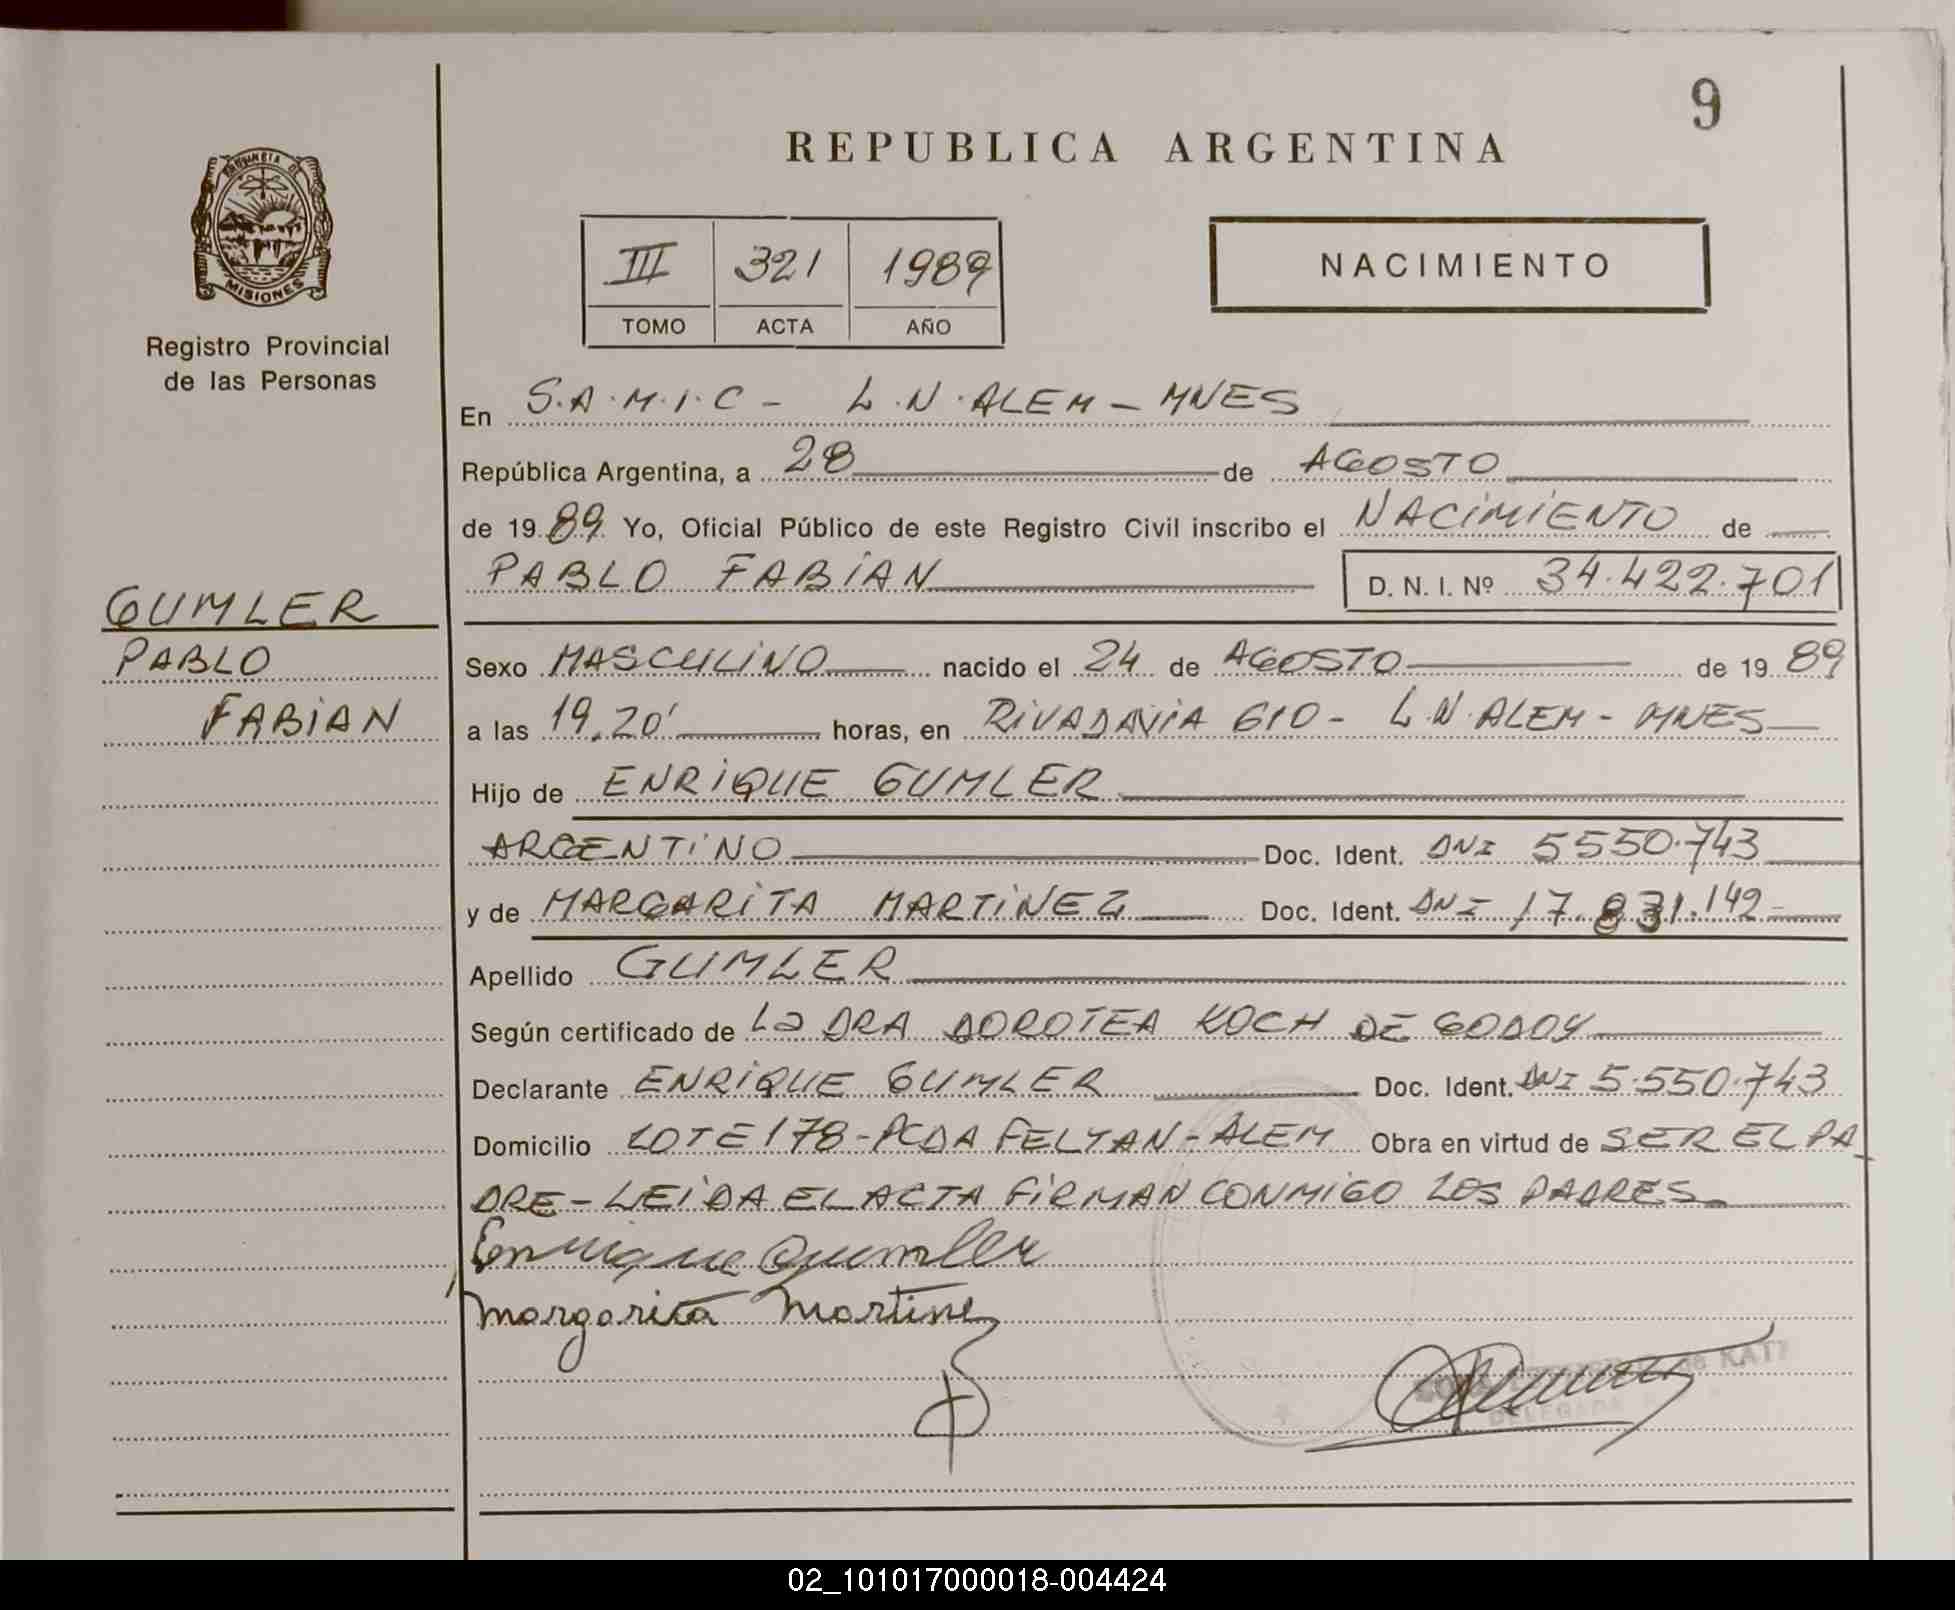 9
REPUBLICA ARGENTINA
PROVINCIA DE
MISIONES
Registro Provincial
de las Personas
III 321 1989
TOMO ACTA AÑO
NACIMIENTO
En S.A.M.I.C - L.N.ALEM - MNES
República Argentina, a 28 de AGOSTO
de 19 89 Yo, Oficial Público de este Registro Civil inscribo el NACIMIENTO de
PABLO FABIAN D. N. I. Nº 34.422.701
GUMLER
PABLO
FABIAN
Sexo MASCULINO nacido el 24 de AGOSTO de 19 89
a las 19.20' horas, en RIVADAVIA 610 - L.N.ALEM - MNES
Hijo de ENRIQUE GUMLER
ARGENTINO Doc. Ident. DNI 5550.743
y de MARGARITA MARTINEZ Doc. Ident. DNI 17.831.142
Apellido GUMLER
Según certificado de La DRA DOROTEA KOCH DE GODOY
Declarante ENRIQUE GUMLER Doc. Ident. DNI 5.550.743
Domicilio LOTE 178 - PCDA FELTAN - ALEM Obra en virtud de SER EL PA
DRE - LEIDA EL ACTA FIRMAN CONMIGO LOS PADRES
Enrique Gumller
Margarita Martinez
DELEGADA
02_101017000018-004424